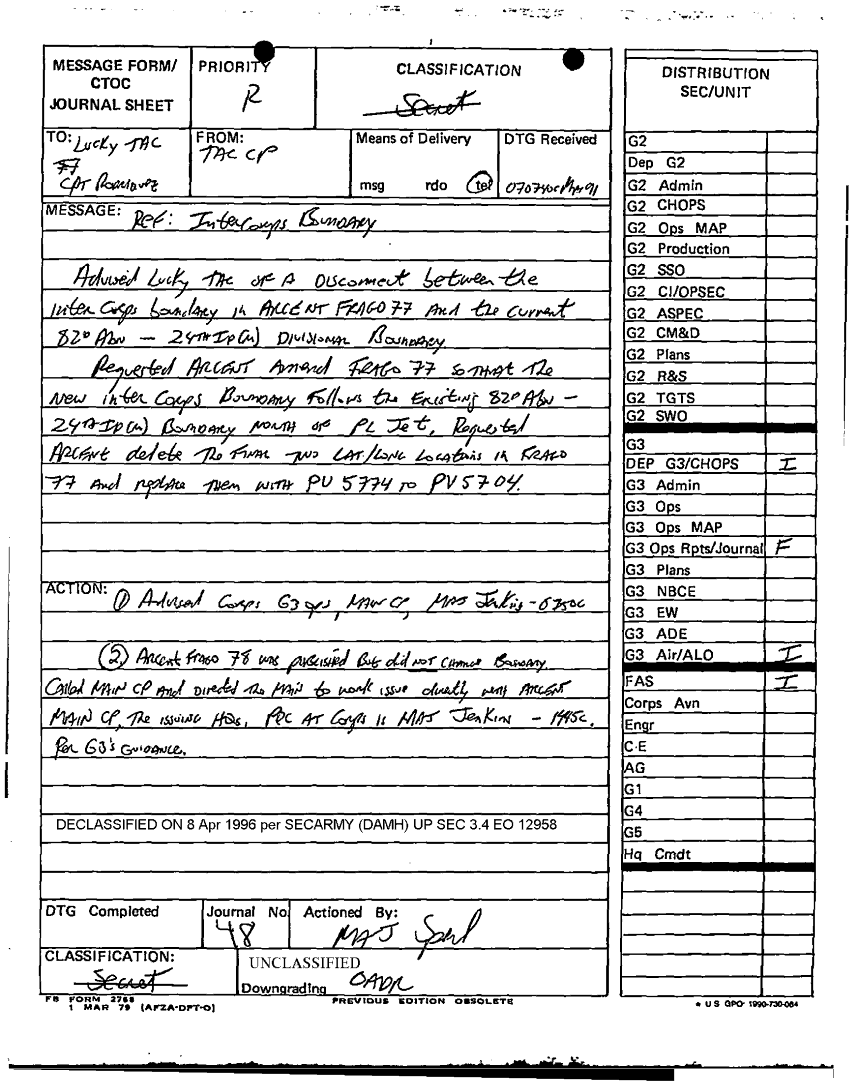 MESSAGE FORM/
CTOC
JOURNAL SHEET
PRIORITY
R
CLASSIFICATION
Secret
TO: Lucky TAC
CPT Rodriguez
FROM:
TAC CP
Means of Delivery
msg rdo tel
DTG Received
MESSAGE: Ref: InterCorps Boundary
Advised Lucky TAC of a Disconnect between the
inter Corps boundary in ARCENT FRAGO 77 And the current
82D Abn — 24th ID(M) Divisional Boundary
Requested ARCENT Amend FRAGO 77 so that the
New inter Corps Boundary Follows the Existing 82D Abn —
24th ID(M) Boundary north of PL Jet, Requested
ARCENT delete the Final two LAT/LONG Locations in FRAGO
77 And replace them with PU 5774 to PV 5704.
ACTION: ① Advised Corps G3 ops, MAIN CP, MAJ Jenkins - 0750C
② Arcent Frago 78 was published But did not change Boundary.
Called MAIN CP And Directed the Main to work issue directly with ARCENT
MAIN CP, The issuing HQs, POC AT Corps is MAJ Jenkins - 1445C.
Per G3's Guidance.
DECLASSIFIED ON 8 Apr 1996 per SECARMY (DAMH) UP SEC 3.4 EO 12958
DTG Completed
Journal No
48
Actioned By:
MAJ
CLASSIFICATION:
Secret
UNCLASSIFIED
Downgrading OADR
FB FORM 2768
1 MAR 79 (AFZA-DPT-O)
PREVIOUS EDITION OBSOLETE
DISTRIBUTION
SEC/UNIT
G2
Dep G2
G2 Admin
G2 CHOPS
G2 Ops MAP
G2 Production
G2 SSO
G2 CI/OPSEC
G2 ASPEC
G2 CM&D
G2 Plans
G2 R&S
G2 TGTS
G2 SWO
G3
DEP G3/CHOPS I
G3 Admin
G3 Ops
G3 Ops MAP
G3 Ops Rpts/Journal F
G3 Plans
G3 NBCE
G3 EW
G3 ADE
G3 Air/ALO I
FAS I
Corps Avn
Engr
C-E
AG
G1
G4
G5
Hq Cmdt
* US GPO: 1990-730-084